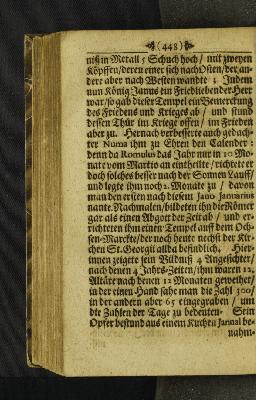 (448)
niß in Metall 5 Schuch hoch / mit zweyen
Köpffen / deren einer sich nach Osten / der an-
dere aber nach Westen wandte; Indem
nun König Janus ein Friedliebender Herr
war / so gab dieser Tempel ein Bemerckung
des Friedens und Krieges ab / und stund
dessen Thür im Kriege offen / im Frieden
aber zu. Hernach verbesserte auch gedach-
ter Numa ihm zu Ehren den Calender:
denn da Romulus das Jahr nur in 10 Mo-
nate vom Martio an eintheilte / richtete er
doch solches besser nach der Sonnen Lauff /
und legte ihm noch 2. Monate zu / davon
man den ersten nach diesem Jano Januarius
nante. Nachmalen / bildeten ihn die Römer
gar als einen Abgott der Zeit ab / und er-
richteten ihm einen Tempel auff dem Och-
sen-Marckte / der noch heute nechst der Kir-
chen St. Georgii allda befindlich. Hier-
innen zeigete sein Bildnuß 4 Angesichter /
nach denen 4 Jahrs-Zeiten / ihm waren 12.
Altäre nach denen 12 Monaten geweihet /
in der einen Hand sahe man die Zahl 300 /
in der andern aber 65 eingegraben / um
die Zahlen der Tage zu bedeuten. Sein
Opfer bestund aus einem Kuchen Janual be-
nahm-